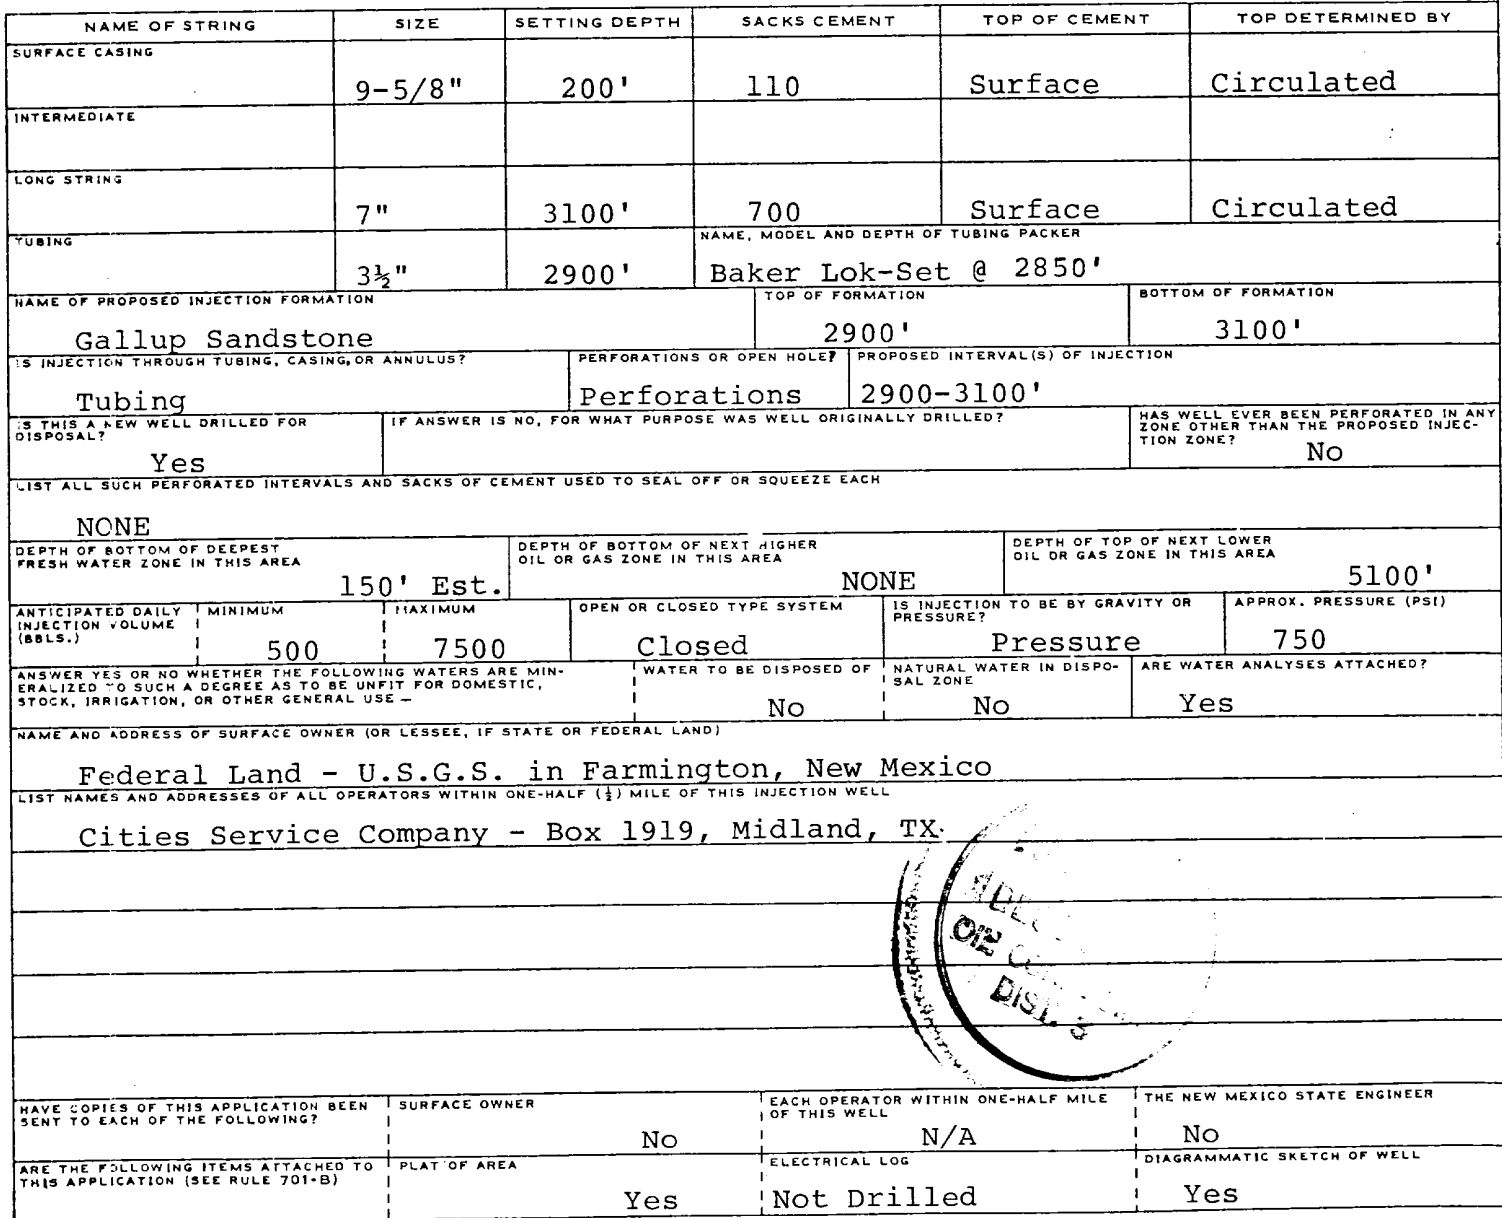 NAME OF STRING SIZE SETTING DEPTH SACKS CEMENT TOP OF CEMENT TOP DETERMINED BY
SURFACE CASING
9-5/8" 200' 110 Surface Circulated
INTERMEDIATE
LONG STRING
7" 3100' 700 Surface Circulated
TUBING NAME, MODEL AND DEPTH OF TUBING PACKER
3½" 2900' Baker Lok-Set @ 2850'
NAME OF PROPOSED INJECTION FORMATION TOP OF FORMATION BOTTOM OF FORMATION
Gallup Sandstone 2900' 3100'
IS INJECTION THROUGH TUBING, CASING, OR ANNULUS? PERFORATIONS OR OPEN HOLE? PROPOSED INTERVAL(S) OF INJECTION
Tubing Perforations 2900-3100'
IS THIS A NEW WELL DRILLED FOR DISPOSAL? IF ANSWER IS NO, FOR WHAT PURPOSE WAS WELL ORIGINALLY DRILLED? HAS WELL EVER BEEN PERFORATED IN ANY ZONE OTHER THAN THE PROPOSED INJEC-
TION ZONE?
Yes No
LIST ALL SUCH PERFORATED INTERVALS AND SACKS OF CEMENT USED TO SEAL OFF OR SQUEEZE EACH
NONE
DEPTH OF BOTTOM OF DEEPEST FRESH WATER ZONE IN THIS AREA DEPTH OF BOTTOM OF NEXT HIGHER OIL OR GAS ZONE IN THIS AREA DEPTH OF TOP OF NEXT LOWER OIL OR GAS ZONE IN THIS AREA
150' Est. NONE 5100'
ANTICIPATED DAILY INJECTION VOLUME (BBLS.) MINIMUM MAXIMUM OPEN OR CLOSED TYPE SYSTEM IS INJECTION TO BE BY GRAVITY OR PRESSURE? APPROX. PRESSURE (PSI)
500 7500 Closed Pressure 750
ANSWER YES OR NO WHETHER THE FOLLOWING WATERS ARE MIN-
ERALIZED TO SUCH A DEGREE AS TO BE UNFIT FOR DOMESTIC,
STOCK, IRRIGATION, OR OTHER GENERAL USE — WATER TO BE DISPOSED OF NATURAL WATER IN DISPO-
SAL ZONE ARE WATER ANALYSES ATTACHED?
No No Yes
NAME AND ADDRESS OF SURFACE OWNER (OR LESSEE, IF STATE OR FEDERAL LAND)
Federal Land - U.S.G.S. in Farmington, New Mexico
LIST NAMES AND ADDRESSES OF ALL OPERATORS WITHIN ONE-HALF (½) MILE OF THIS INJECTION WELL
Cities Service Company - Box 1919, Midland, TX
DIST. 3
HAVE COPIES OF THIS APPLICATION BEEN SENT TO EACH OF THE FOLLOWING? SURFACE OWNER EACH OPERATOR WITHIN ONE-HALF MILE OF THIS WELL THE NEW MEXICO STATE ENGINEER
No N/A No
ARE THE FOLLOWING ITEMS ATTACHED TO THIS APPLICATION (SEE RULE 701-B) PLAT OF AREA ELECTRICAL LOG DIAGRAMMATIC SKETCH OF WELL
Yes Not Drilled Yes